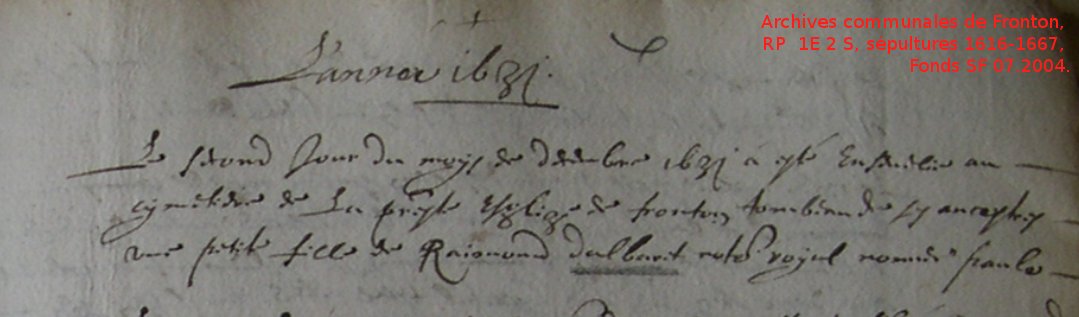 Archives communales de Fronton,
RP 1E 2 S, sepultures 1616-1667,
Fonds SF 07.2004.
L'annee 1631.
Le second Jour du moys de decembre 1631 a esté Ensevelie au
cymetiere de La pnte Esglize de fronton tombeau de ses ancestres
une petite fille de Raimond dalbaret note royal